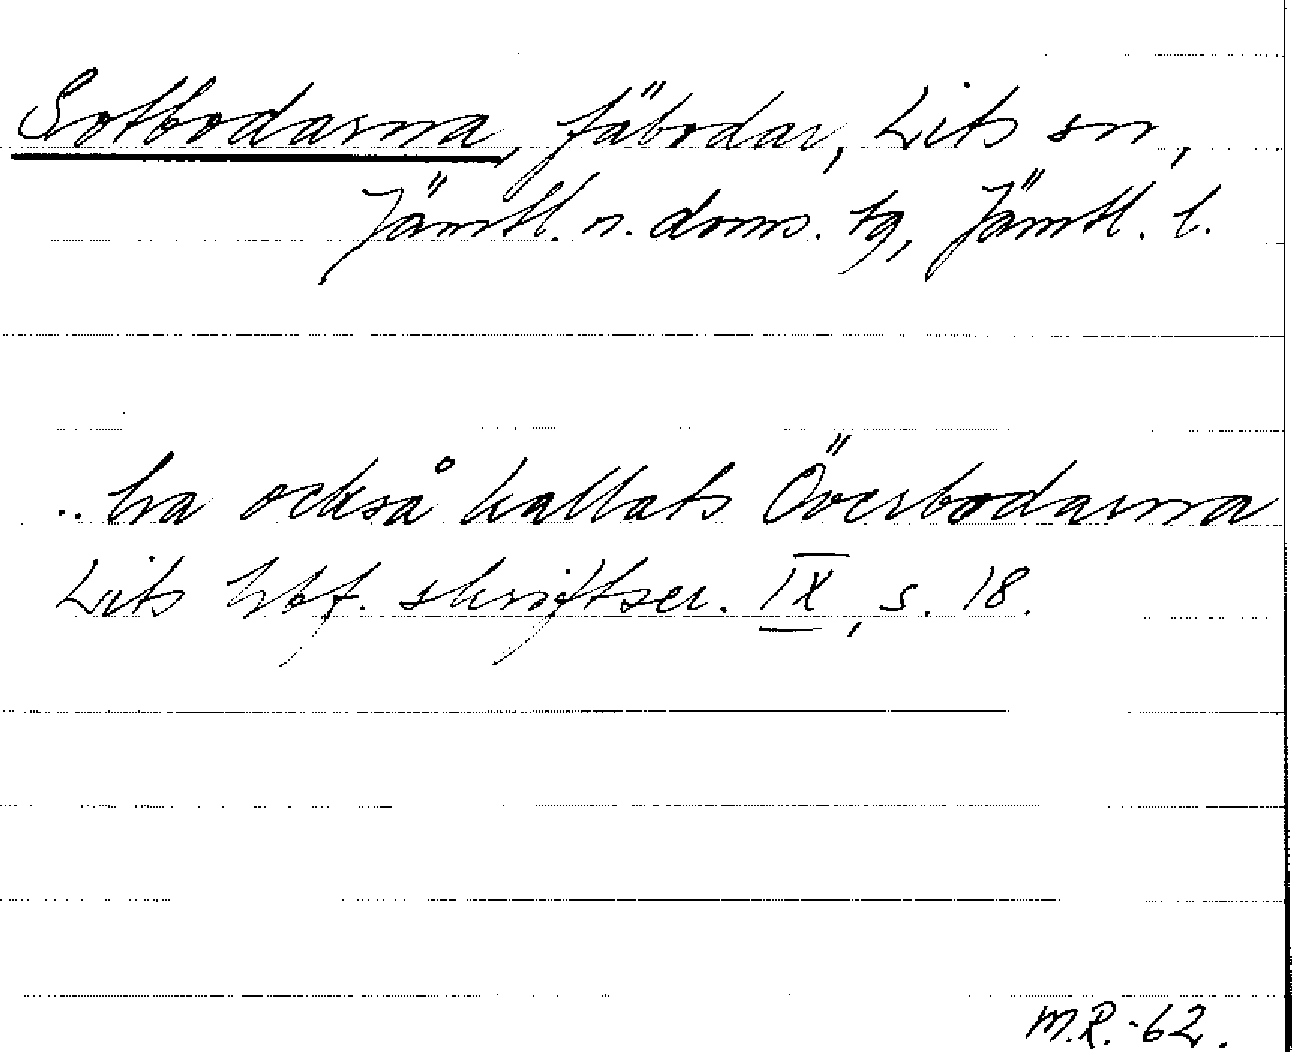 Sotbodarna, fäbodar, Lits sn,
Jämtl. n. doms. tg, Jämtl. l.
.. ha också kallats Överbodarna
Lits hbf. skriftser. IX, s. 18.
M.R.-62.